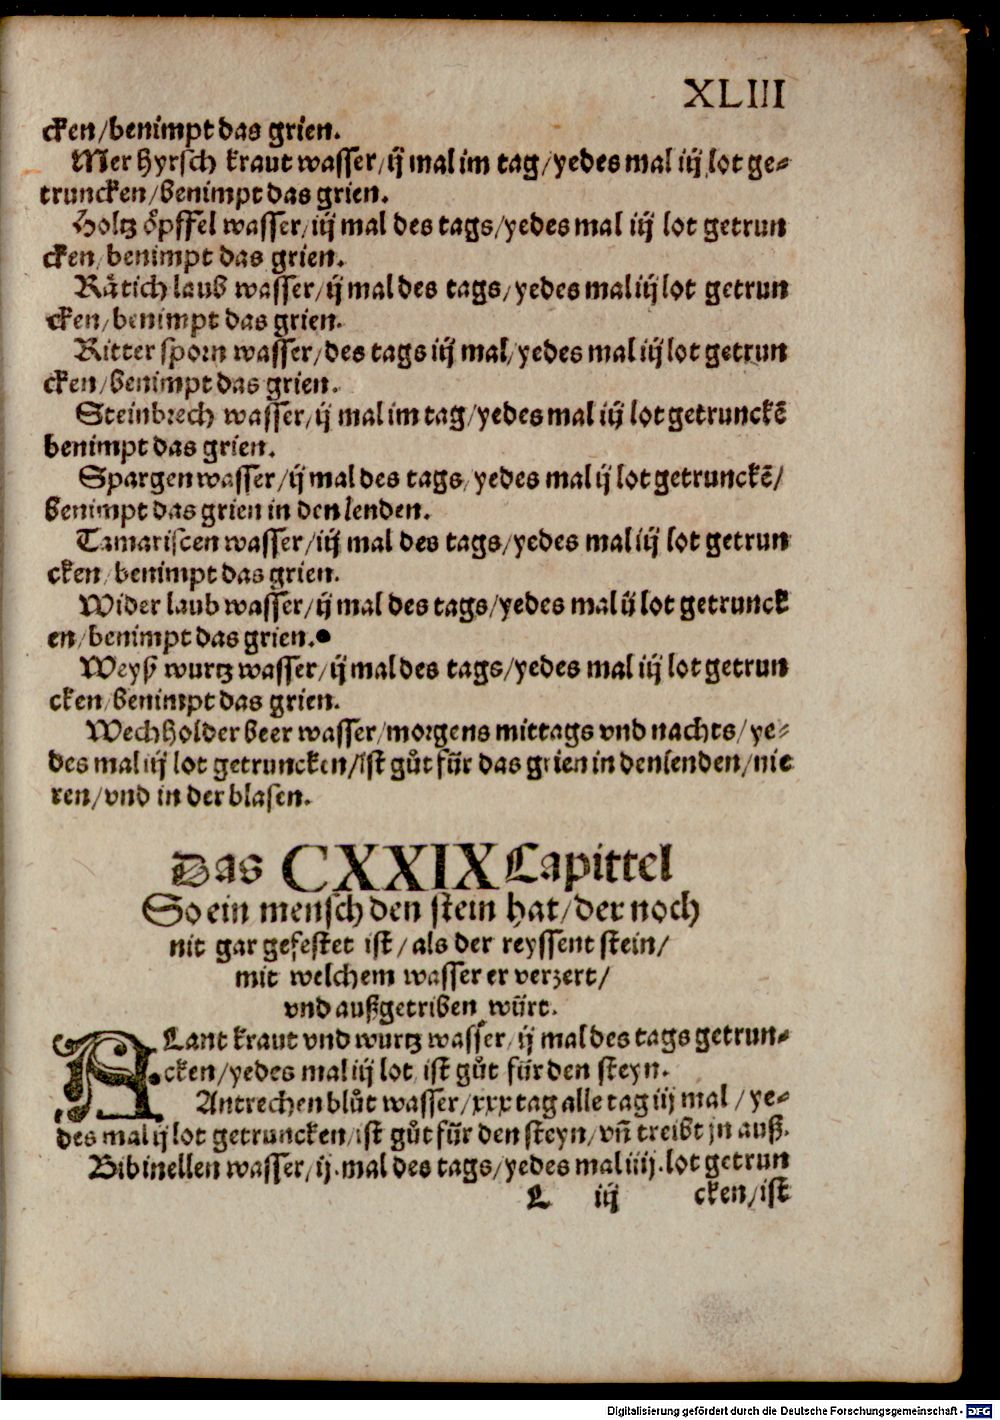 XLIII
cken/benimpt das grien.
Mer hyrsch kraut wasser/ij mal im tag/yedes mal iij lot ge-
truncken/benimpt das grien.
Holtz öpffel wasser/iij mal des tags/yedes mal iij lot getrun
cken/benimpt das grien.
Rätich laub wasser/ij mal des tags/yedes mal iij lot getrun
cken/benimpt das grien.
Ritter sporn wasser/des tags iij mal/yedes mal iij lot getrun
cken/benimpt das grien.
Steinbrech wasser/ij mal im tag/yedes mal iij lot getrunckē
benimpt das grien.
Spargen wasser/ij mal des tags/yedes mal ij lot getrunckē/
benimpt das grien in den lenden.
Tamariscen wasser/iij mal des tags/yedes mal iij lot getrun
cken/benimpt das grien.
Wider laub wasser/ij mal des tags/yedes mal ij lot getrunck
en/benimpt das grien.
Weyß wurtz wasser/ij mal des tags/yedes mal iij lot getrun
cken/benimpt das grien.
Wechholder beer wasser/morgens mittags vnd nachts/ye-
des mal iij lot getruncken/ist gůt für das grien in den lenden/nie
ren/vnd in der blasen.
Das CXXIX Capittel
So ein mensch den stein hat/der noch
nit gar gefestet ist/als der reyssent stein/
mit welchem wasser er verzert/
vnd außgetriben würt.
ALant kraut vnd wurtz wasser/ij mal des tags getrun-
cken/yedes mal iij lot/ist gůt für den steyn.
Antrechen blůt wasser/xxx tag alle tag iij mal/ye-
des mal ij lot getruncken/ist gůt für den steyn/vñ treibt jn auß.
Bibinellen wasser/ij.mal des tags/yedes mal iiij.lot getrun
L iij cken/ist
Digitalisierung gefördert durch die Deutsche Forschungsgemeinschaft - DFG